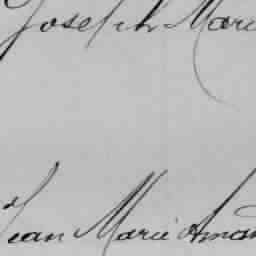 Joseph Marie
Jean Marie Aman